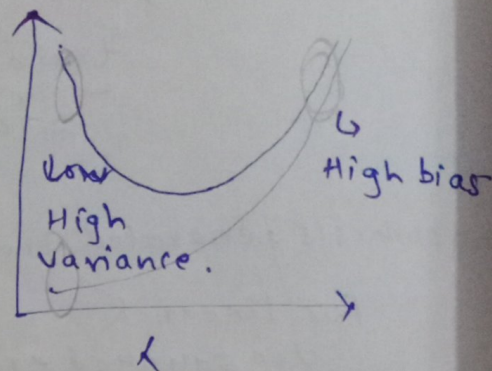 High
variance.
High bias